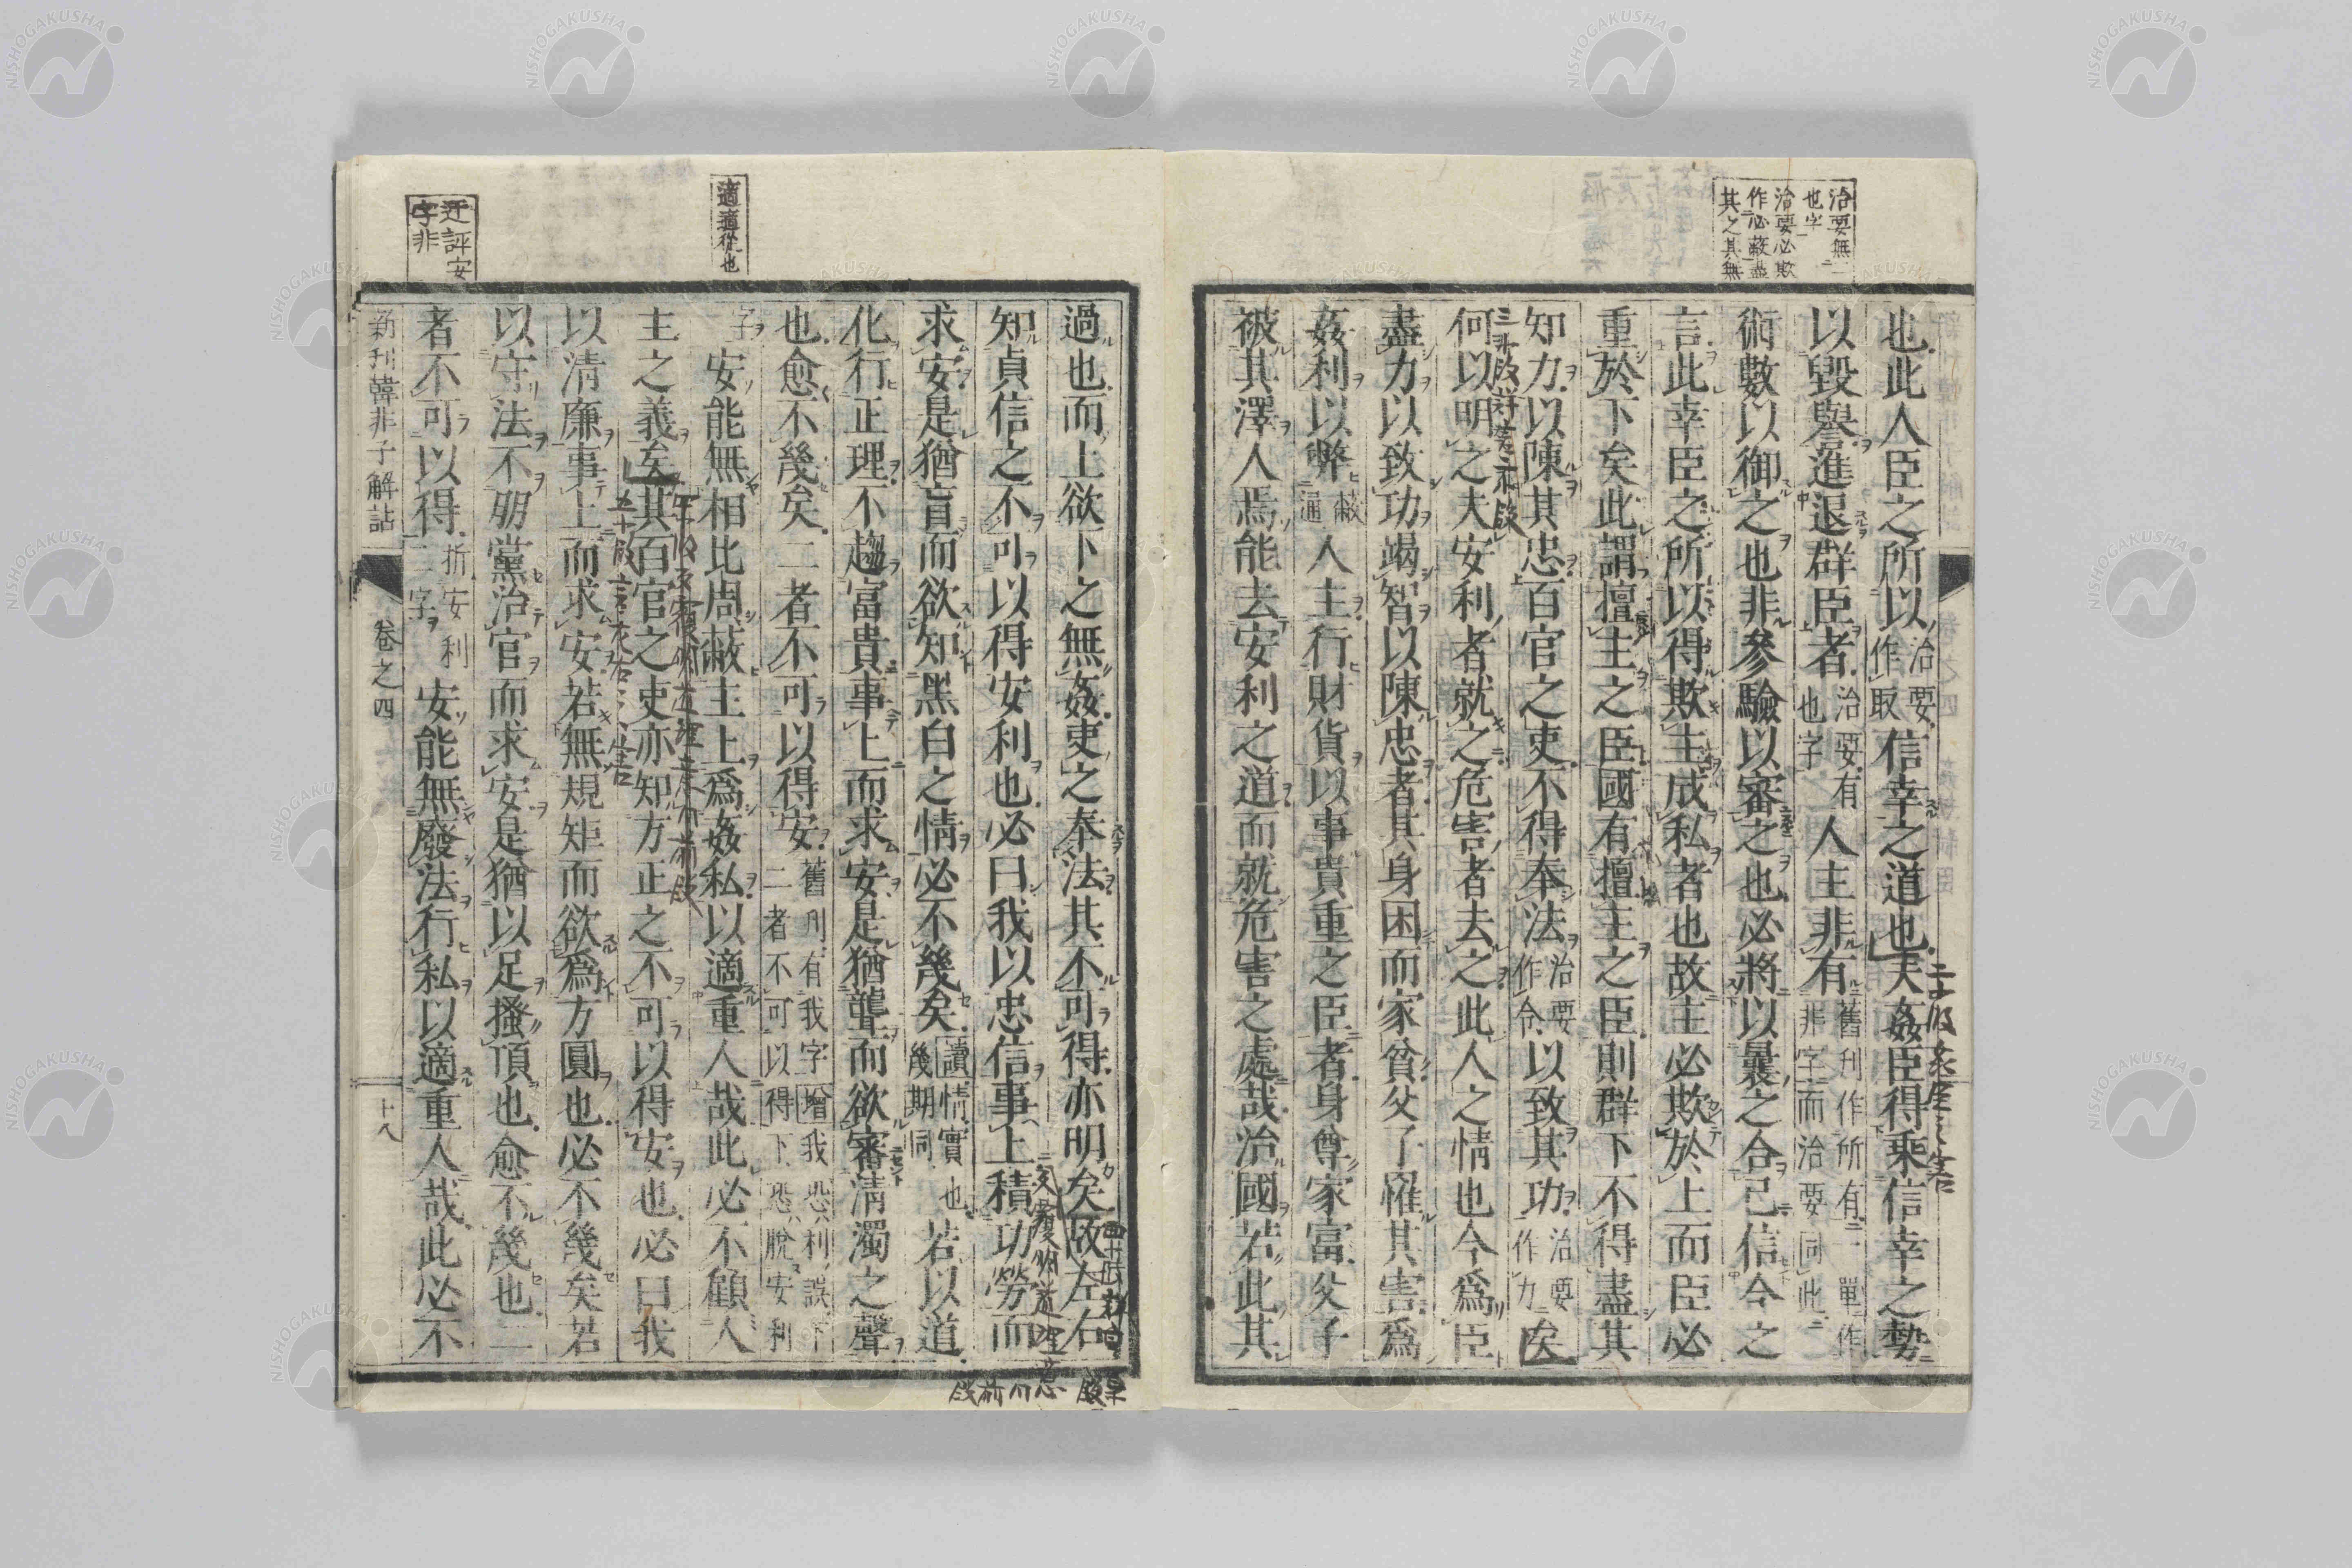 治要無
也字
治要必欺
作必蔽盡
其之其無
也此人臣之所以治要作取信幸之道也夫姦臣得乘信幸之勢
以毀譽進退群臣者治要有也字人主非有舊刊作所有一單作非字而治要同此
術數以御之也非參驗以審之也必將以曩之合己信今之
言此幸臣之所以得欺主成私者也故主必欺於上而臣必
重於下矣此謂擅主之臣國有擅主之臣則群下不得盡其
知力以陳其忠百官之吏不得奉法治要作令以致其功治要作力矣
何以明之夫安利者就之危害者去之此人之情也今爲臣
盡力以致功竭智以陳忠者其身困而家貧父子罹其害爲
姦利以弊蔽通人主行財貨以事貴重之臣者身尊家富父子
被其澤人焉能去安利之道而就危害之處哉治國若此其
適適從也
近評安
字非
過也而上欲下之無姦吏之奉法其不可得亦明矣故左右
知貞信之不可以得安利也必曰我以忠信事上積功勞而
求安是猶盲而欲知黑白之情必不幾矣讀情實也幾期同若以道
化行正理不趨富貴事上而求安是猶聾而欲審清濁之聲
也愈不幾矣二者不可以得安舊刊有我字增我恐利誤下二者不可以得下恐脫安利
字安能無相比周蔽主上爲姦私以適重人哉此必不顧人
主之義矣其百官之吏亦知方正之不可以得安也必曰我
以清廉事上而求安若無規矩而欲爲方圓也必不幾矣若
以守法不朋黨治官而求安是猶以足搔頂也愈不幾也二
者不可以得折安利二字安能無廢法行私以適重人哉此必不
新刊韓非子解詁 卷之四 十八